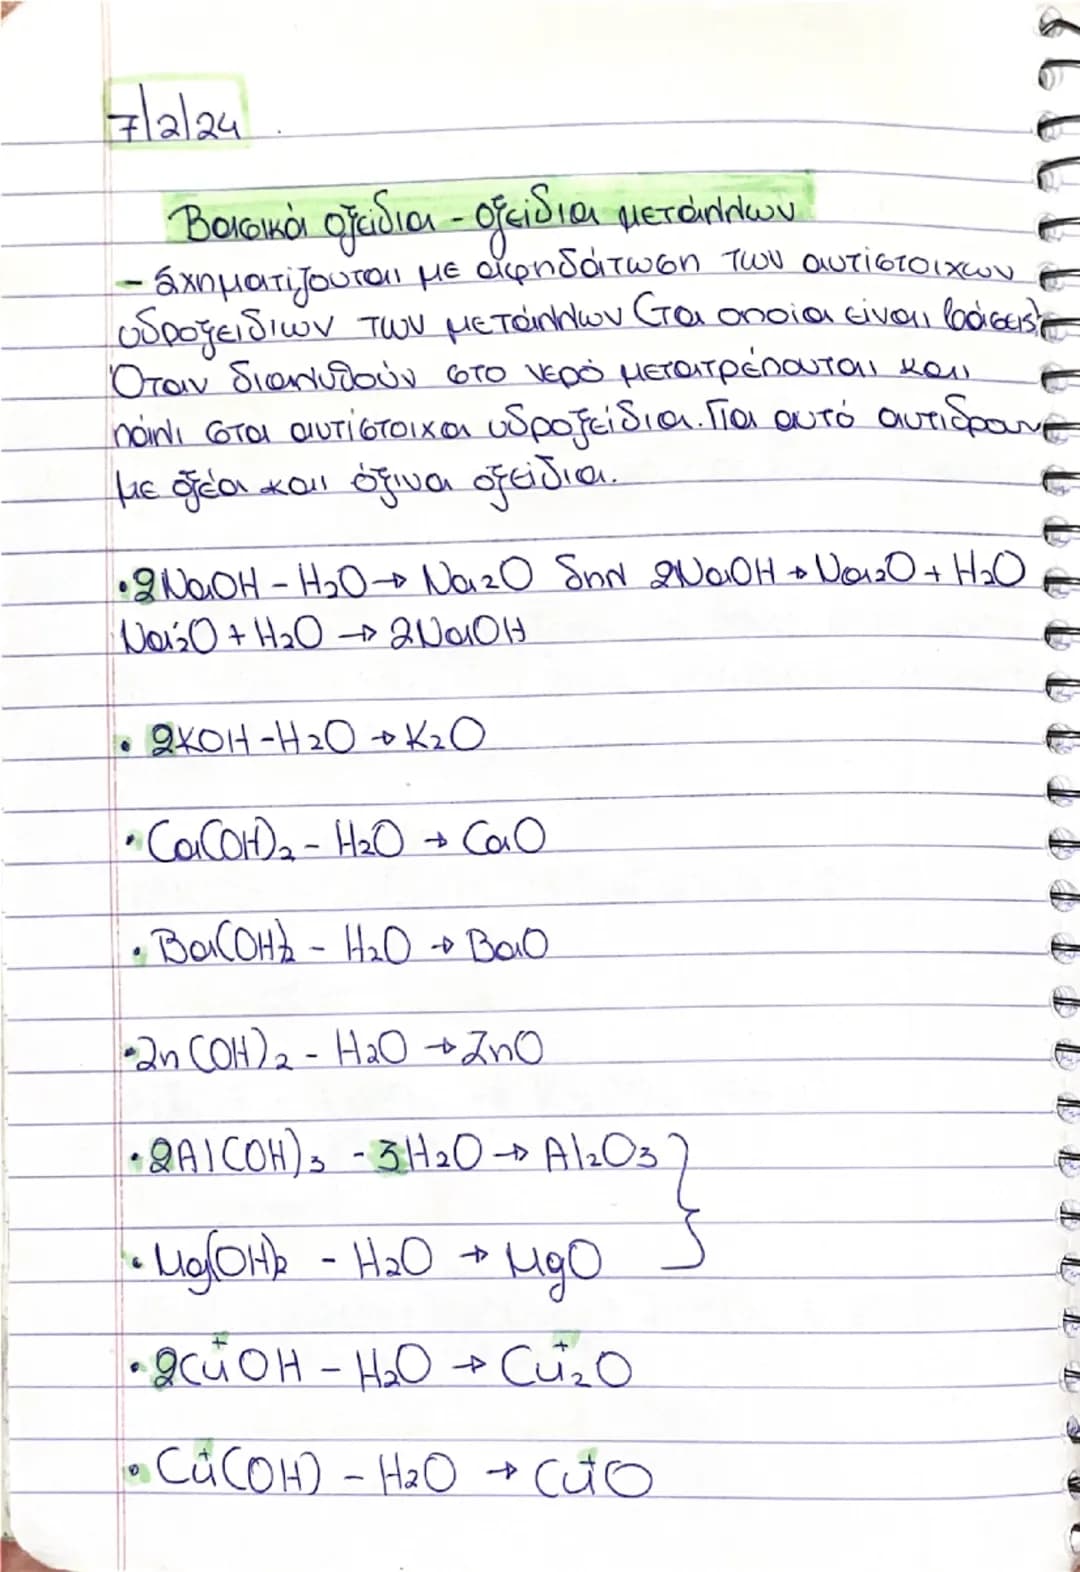 7/2/24
Βασικά οξείδια - οξείδια μετάλλων
- Σχηματίζονται με αφηδάτωση των αντίστοιχων
υδροξειδίων των μετάλλων (τα οποία είναι βάσεις)
Όταν διαλυθούν στο νερό μετατρέπονται και
πάλι στα αντίστοιχα υδροξείδια. Για αυτό αντιδραν
με οξέα και όξινα οξείδια.
• 2NaOH - H₂O → Na₂O δηλ 2NaOH → Na₂O + H₂O
Na₂O + H₂O → 2NaOH
• 2KOH - H₂O → K₂O
• Ca(OH)₂ - H₂O → CaO
• Ba(OH)₂ - H₂O → BaO
• Zn(OH)₂ - H₂O → ZnO
• 2Al(OH)₃ - 3H₂O → Al₂O₃ }
• Mg(OH)₂ - H₂O → MgO
• 2Cu⁺OH - H₂O → Cu⁺₂O
• Cu⁺(OH) - H₂O → Cu⁺O